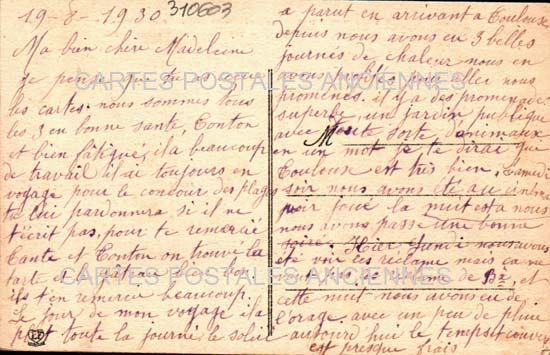 19-8-1930 310603
Ma bien chère Madeleine
je pense que tu as reçu
les cartes. nous sommes tous
les 3 en bonne santé, Tonton
et bien fatigué, il a beaucoup
de travail il ai toujours en
voyage pour le concour des plages
tu lui pardonnera si il ne
t'écrit pas, pour te remercié
Tante et Tonton on trouvé la
tarte et le gâteau bien bon
ils t'en remercie beaucoup.
Le jour de mon voyage il a
plut toute la journée, le soleil
a parut en arrivant a Toulouse
depuis nous avons eu 3 belles
journés de chaleur nous en
avons profité pour aller nous
promenés. il y a des promenades
superbe, un jardin publique
avec toute sorte d'animaux
en un mot je te dirai que
Toulouse est très bien, Samedi
soir nous avons été au cinéma
voir joué la nuit est a nous
nous avons passé une bonne
soirée. Hier lundi nous avons
été voir ces reclame mais ça ne
vaut pas le cinéma de Bx, et
cette nuit nous avons eu de
l'orage avec un peu de pluie
aujourd'hui le temps et couvert
est presque frais
CARTES POSTALES ANCIENNES
CARTES POSTALES ANCIENNES